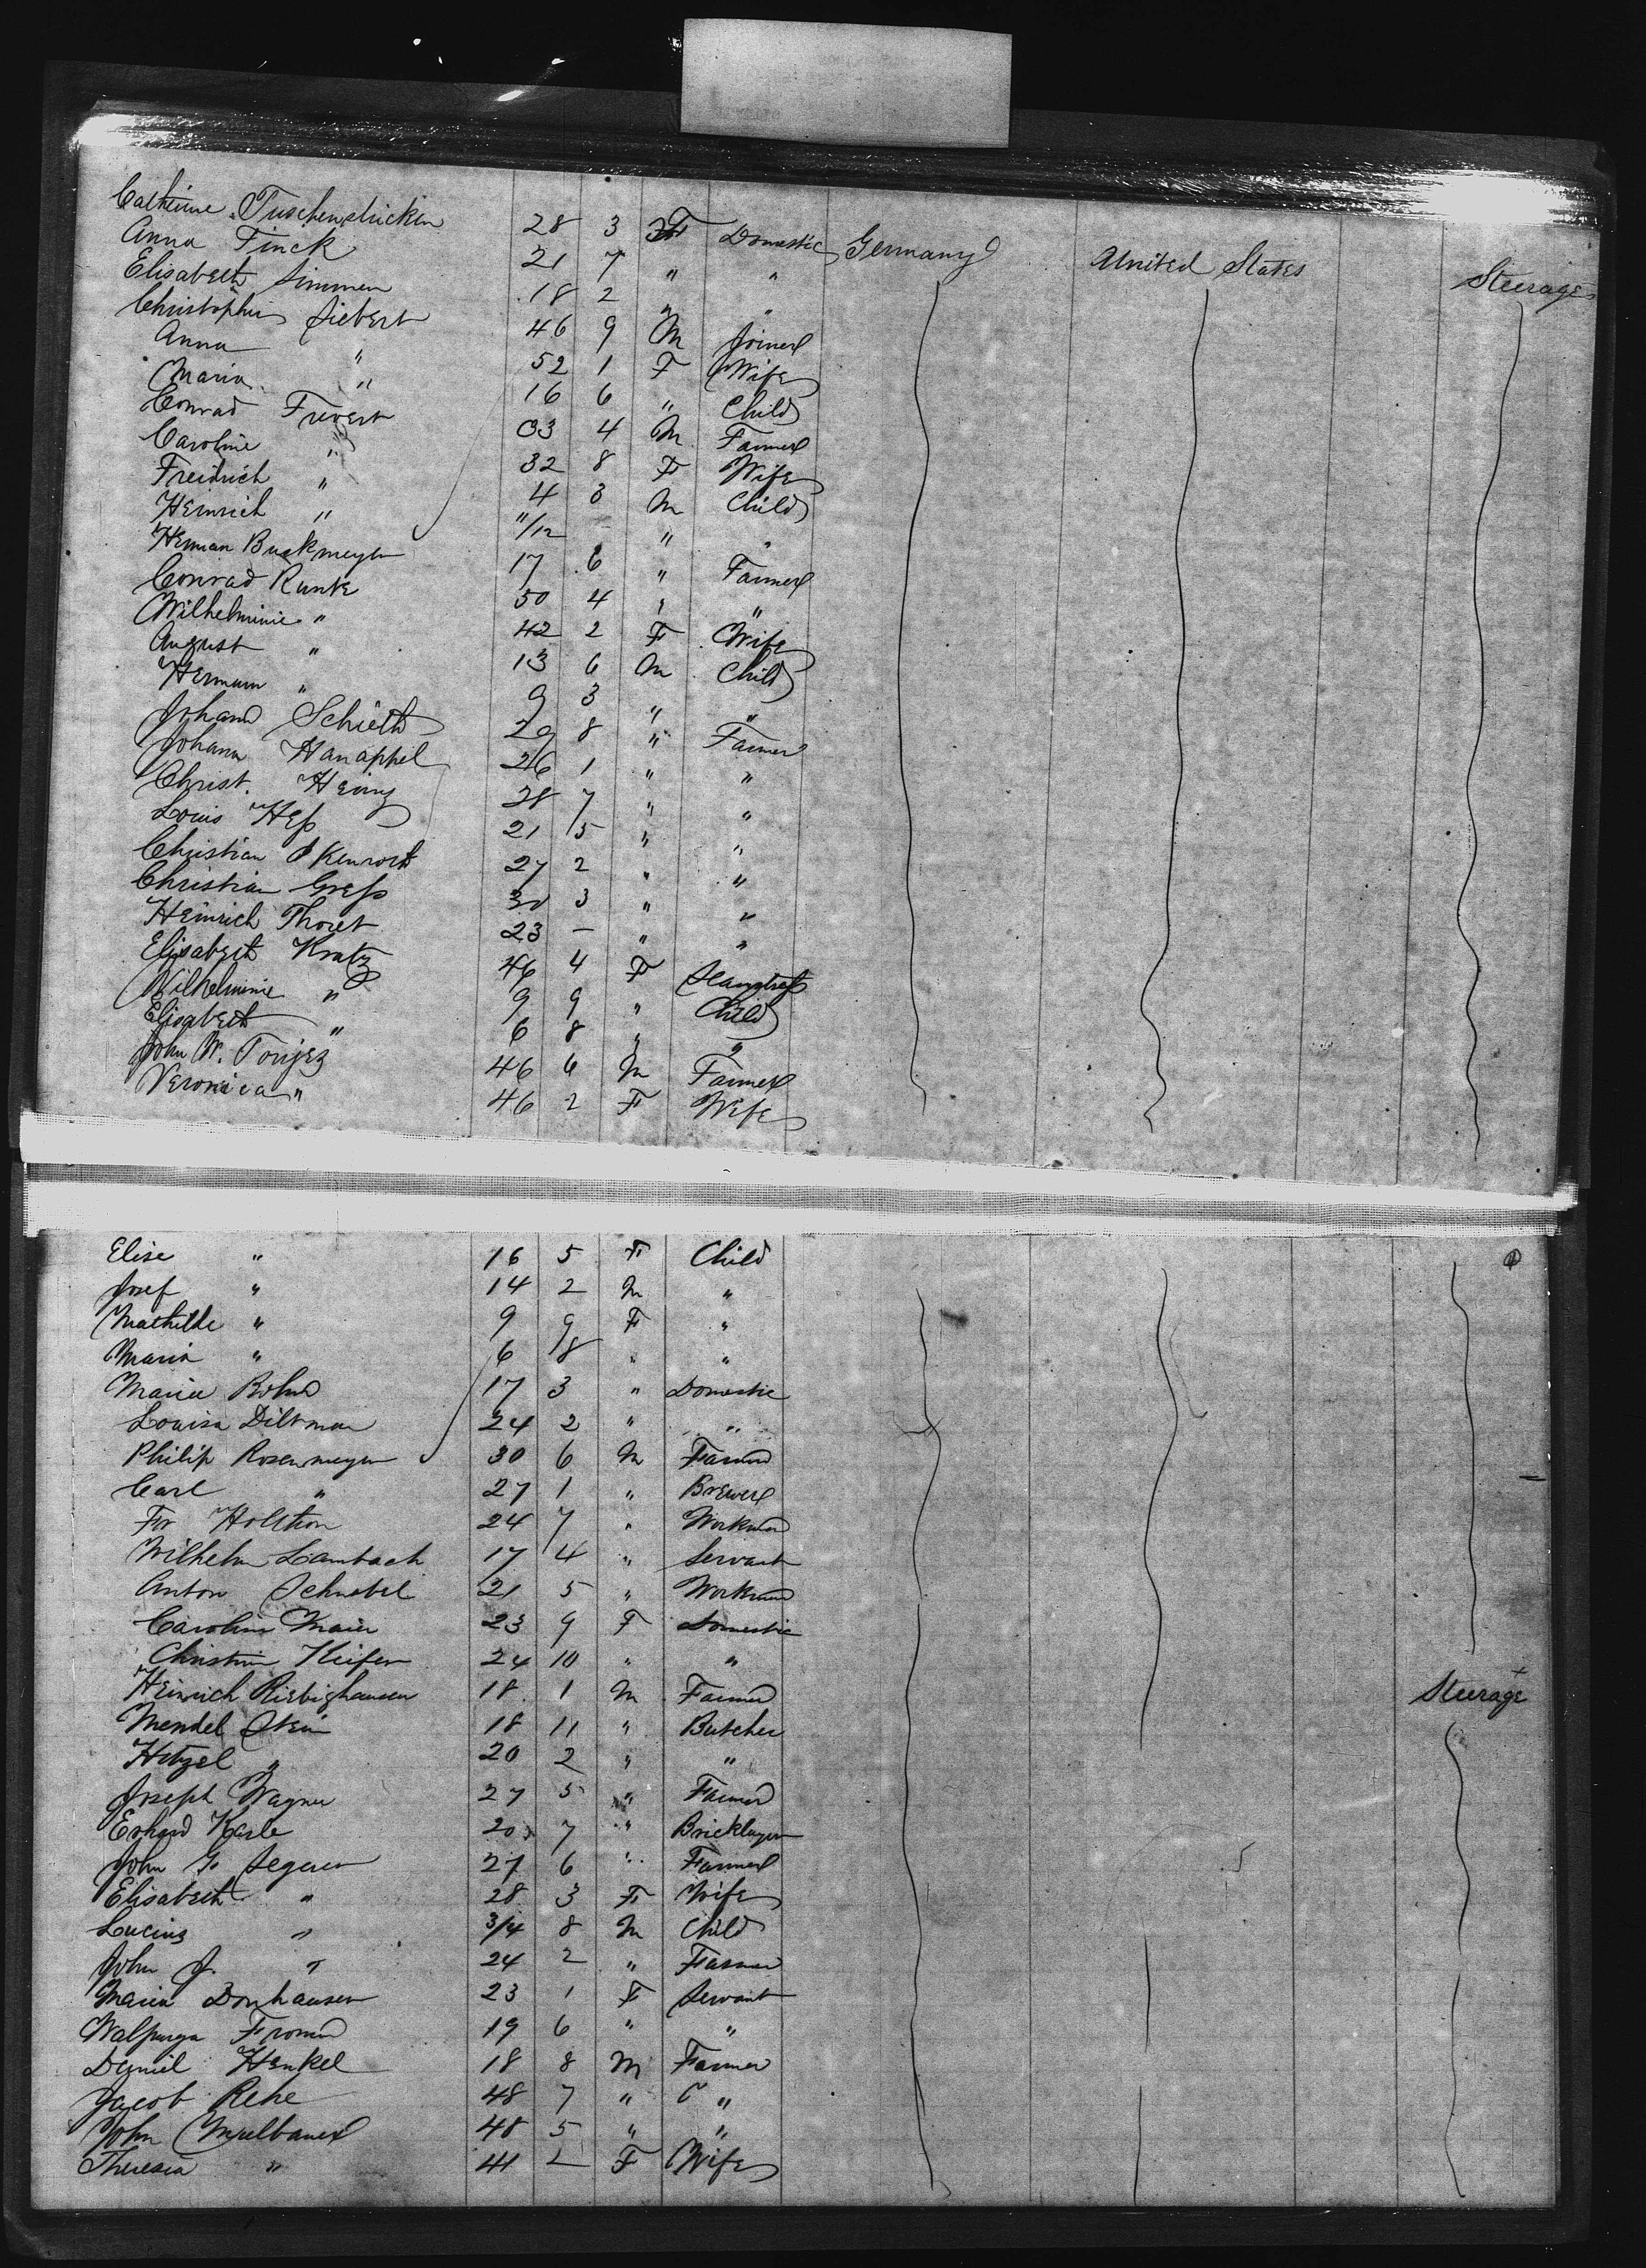 Catherine Tuschenstricken 28 3 F Domestic Germany United States Steerage
Anna Finck 21 7 " "
Elisabeth Simmen 18 2 " "
Christopher Siebert 46 9 M Joiner
Anna " 52 1 F Wife
Maria " 16 6 " Child
Conrad Frevert 33 4 M Farmer
Caroline " 32 8 F Wife
Freidrich " 4 3 M Child
Heinrich " 11/12 - " "
Herman Buckmeyer 17 6 " Farmer
Conrad Runte 50 4 " "
Wilhelmine " 42 2 F Wife
August " 13 6 M Child
Hermann " 9 3 " "
Johann Schieth 29 8 " Farmer
Johann Hanappel 26 1 " "
Christ. Heinz 28 7 " "
Louis Heß 21 5 " "
Christian 27 2 " "
Christian Greß 30 3 " "
Heinrich Thoret 23 – " "
Elisabeth Kratz 46 4 F
Wilhelmine " 9 9 " Child
Elisabeth " 6 8 " "
John W. Tonjez 46 6 M Farmer
Veronica " 46 2 F Wife
Elise " 16 5 F Child
Josef " 14 2 M "
Mathilde " 9 9 F "
Maria " 6 8 " "
Maria Bohn 17 3 " Domestic
Louisa Diltman 24 2 " "
Philip Rosenmeyer 30 6 M Farmer
Carl " 27 1 " Brewer
Fr Holsthon 24 7 " Workman
Wilhelm Lambach 17 4 " Servant
Anton Schnebel 21 5 " Workman
Caroline Maier 23 9 F Domestic
Christine Kiefer 24 10 " "
Heinrich Riebighausen 18 1 M Farmer Steerage
Mendel Stein 18 11 " Butcher
Hetzel " 20 2 " "
Joseph Wagner 27 5 " Farmer
Erhard Karle 20 7 " Bricklayer
John G. Segerer 27 6 " Farmer
Elisabeth " 28 3 F Wife
Lucius " 3/4 8 M Child
John J. " 24 2 " Farmer
Maria Donhauser 23 1 F Servant
Walpurga Fromm 19 6 " "
Daniel Henkel 18 8 M Farmer
Jacob Rehe 48 7 " "
John Muelbauer 48 5 " "
Theresia " 41 2 F Wife